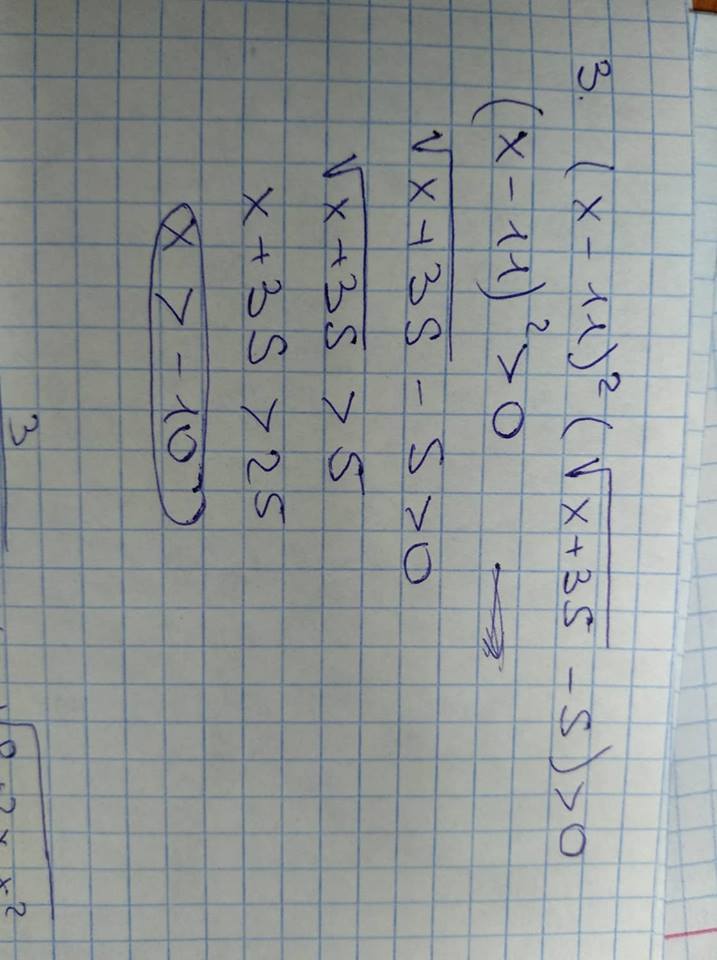 3. (x-11)²(√x+35 -5)>0
(x-11)²>0
√x+35 -5>0
√x+35 >5
x+35>25
x>-10
3